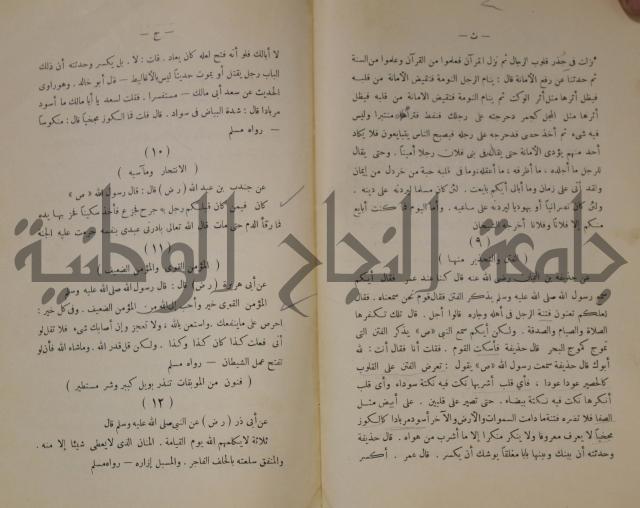 — ث —
نزلت في جذر قلوب الرجال ثم نزل القرآن فعلموا من القرآن وعلموا من السنة
ثم حدثنا عن رفع الأمانة قال : ينام الرجل النومة فتقبض الأمانة من قلبه
فيظل أثرها مثل أثر الوكت ثم ينام النومة فتقبض الأمانة من قلبه فيظل
أثرها مثل المجل كجمر دحرجته على رجلك فنفط فتراه منتبرا وليس
فيه شيء ثم أخذ حصى فدحرجه على رجله فيصبح الناس يتبايعون فلا يكاد
أحد منهم يؤدى الأمانة حتى يقال إن فى بنى فلان رجلا أمينا . وحتى يقال
للرجل ما أجلده ، ما أظرفه ؛ ما أعقله وما فى قلبه حبة من خردل من إيمان
ولقد أتى على زمان وما أبالى أيكم بايعت . لئن كان مسلما ليردنه على دينه .
ولئن كان نصرانياً أو يهوديا ليردنه على ساعيه . وأما اليوم فما كنت أبايع
منكم إلا فلاناً وفلانا أخرجه الشيخان
( ٩ )
( الفتن والتحذير منها )
عن حذيفة بن اليمان رضى الله عنه قال كنا عند عمر فقال أيكم
سمع رسول الله صلى الله عليه وسلم يذكر الفتن فقال قوم نحن سمعناه . فقال
لعلكم تعنون فتنة الرجل فى أهله وجاره قالوا أجل . قال تلك تكفرها
الصلاة والصيام والصدقة . ولكن أيكم سمع النبى «ص» يذكر الفتن التى
تموج كموج البحر قال حذيفة فأسكت القوم . فقلت أنا فقال أنت : لله
أبوك قال حذيفة سمعت رسول الله «ص» يقول : تعرض الفتن على القلوب
كالحصير عودا عودا ، فأي قلب أشربها نكت فيه نكتة سوداء وأى قلب
أنكرها نكت فيه نكتة بيضاء . حتى تصير على قلبين . على أبيض مثل
الصفا فلا تضره فتنة ما دامت السموات والأرض والآخر أسود مربادا كالكوز
مجخياً لا يعرف معروفا ولا ينكر منكرا إلا ما أشرب من هواه . قال حذيفة
وحدثته أن بينك وبينها بابا مغلقاً يوشك أن يكسر . قال عمر . أكسر
— ج —
لا أبالك فلو أنه فتح لعله كان يعاد . قلت : لا . بل يكسر وحدثته أن ذلك
الباب رجل يقتل أو يموت حديثاً ليس بالأغاليط — قال أبو خالد . وهو راوى
الحديث عن سعد أبى مالك — مستفسرا . فقلت لسعد يا أبا مالك ما أسود
مربادا قال : شدة البياض فى سواد . قال قلت فما الكوز مجخياً قال : منكوساً
— رواه مسلم
( ١٠ )
( الانتحار ومآسيه )
عن جندب بن عبد الله ( رض ) قال : قال رسول الله «ص»
كان فيمن كان قبلكم رجل به جرح فجزع فأخذ سكيناً فحز بها يده
فما رقأ الدم حتى مات قال الله تعالى بادرنى عبدى بنفسه حرمت عليه الجنة
( ١١ )
( المؤمن القوى والمؤمن الضعيف )
عن أبى هريرة ( رض ) قال : قال رسول الله صلى الله عليه وسلم
المؤمن القوى خير وأحب إلى الله من المؤمن الضعيف . وفى كل خير :
احرص على ما ينفعك . واستعن بالله ، ولا تعجز وإن أصابك شىء فلا تقل لو
أنى فعلت كذا كان كذا وكذا . ولكن قل قدر الله . وما شاء الله فعل فإن لو
تفتح عمل الشيطان — رواه مسلم
( فنون من الموبقات تنذر بويل كبير وشر مستطير )
( ١٢ )
عن أبى ذر ( رض ) عن النبى صلى الله عليه وسلم قال
ثلاثة لا يكلمهم الله يوم القيامة . المنان الذى لا يعطى شيئا إلا منه .
والمنفق سلعته بالحلف الفاجر . والمسبل إزاره — رواه مسلم
جامعة النجاح الوطنية